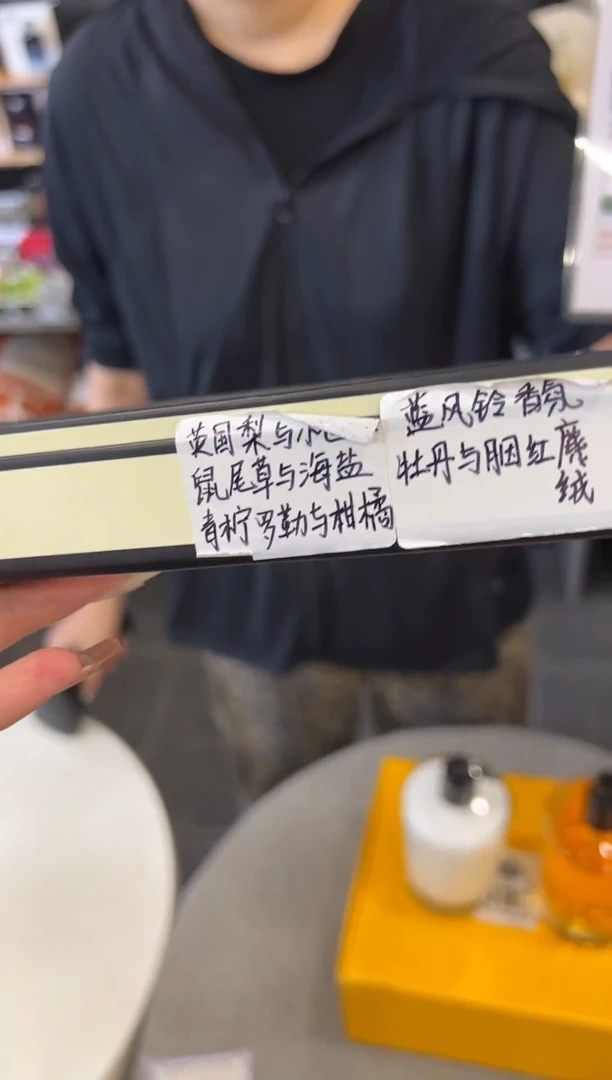 英国梨与小
鼠尾草与海盐
青柠罗勒与柑橘
蓝风铃香氛
牡丹与胭红麂
绒